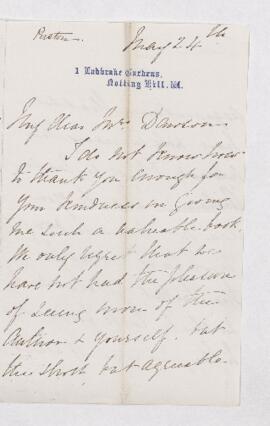 May 24th
1 Ladbroke Gardens,
Notting Hill. W.
My dear Mrs Dawson
I do not know how
to thank you enough for
your kindness in giving
me such a valuable book.
We only regret that we
have not had the pleasure
of seeing more of the
Author & yourself. but
the short, but agreeable